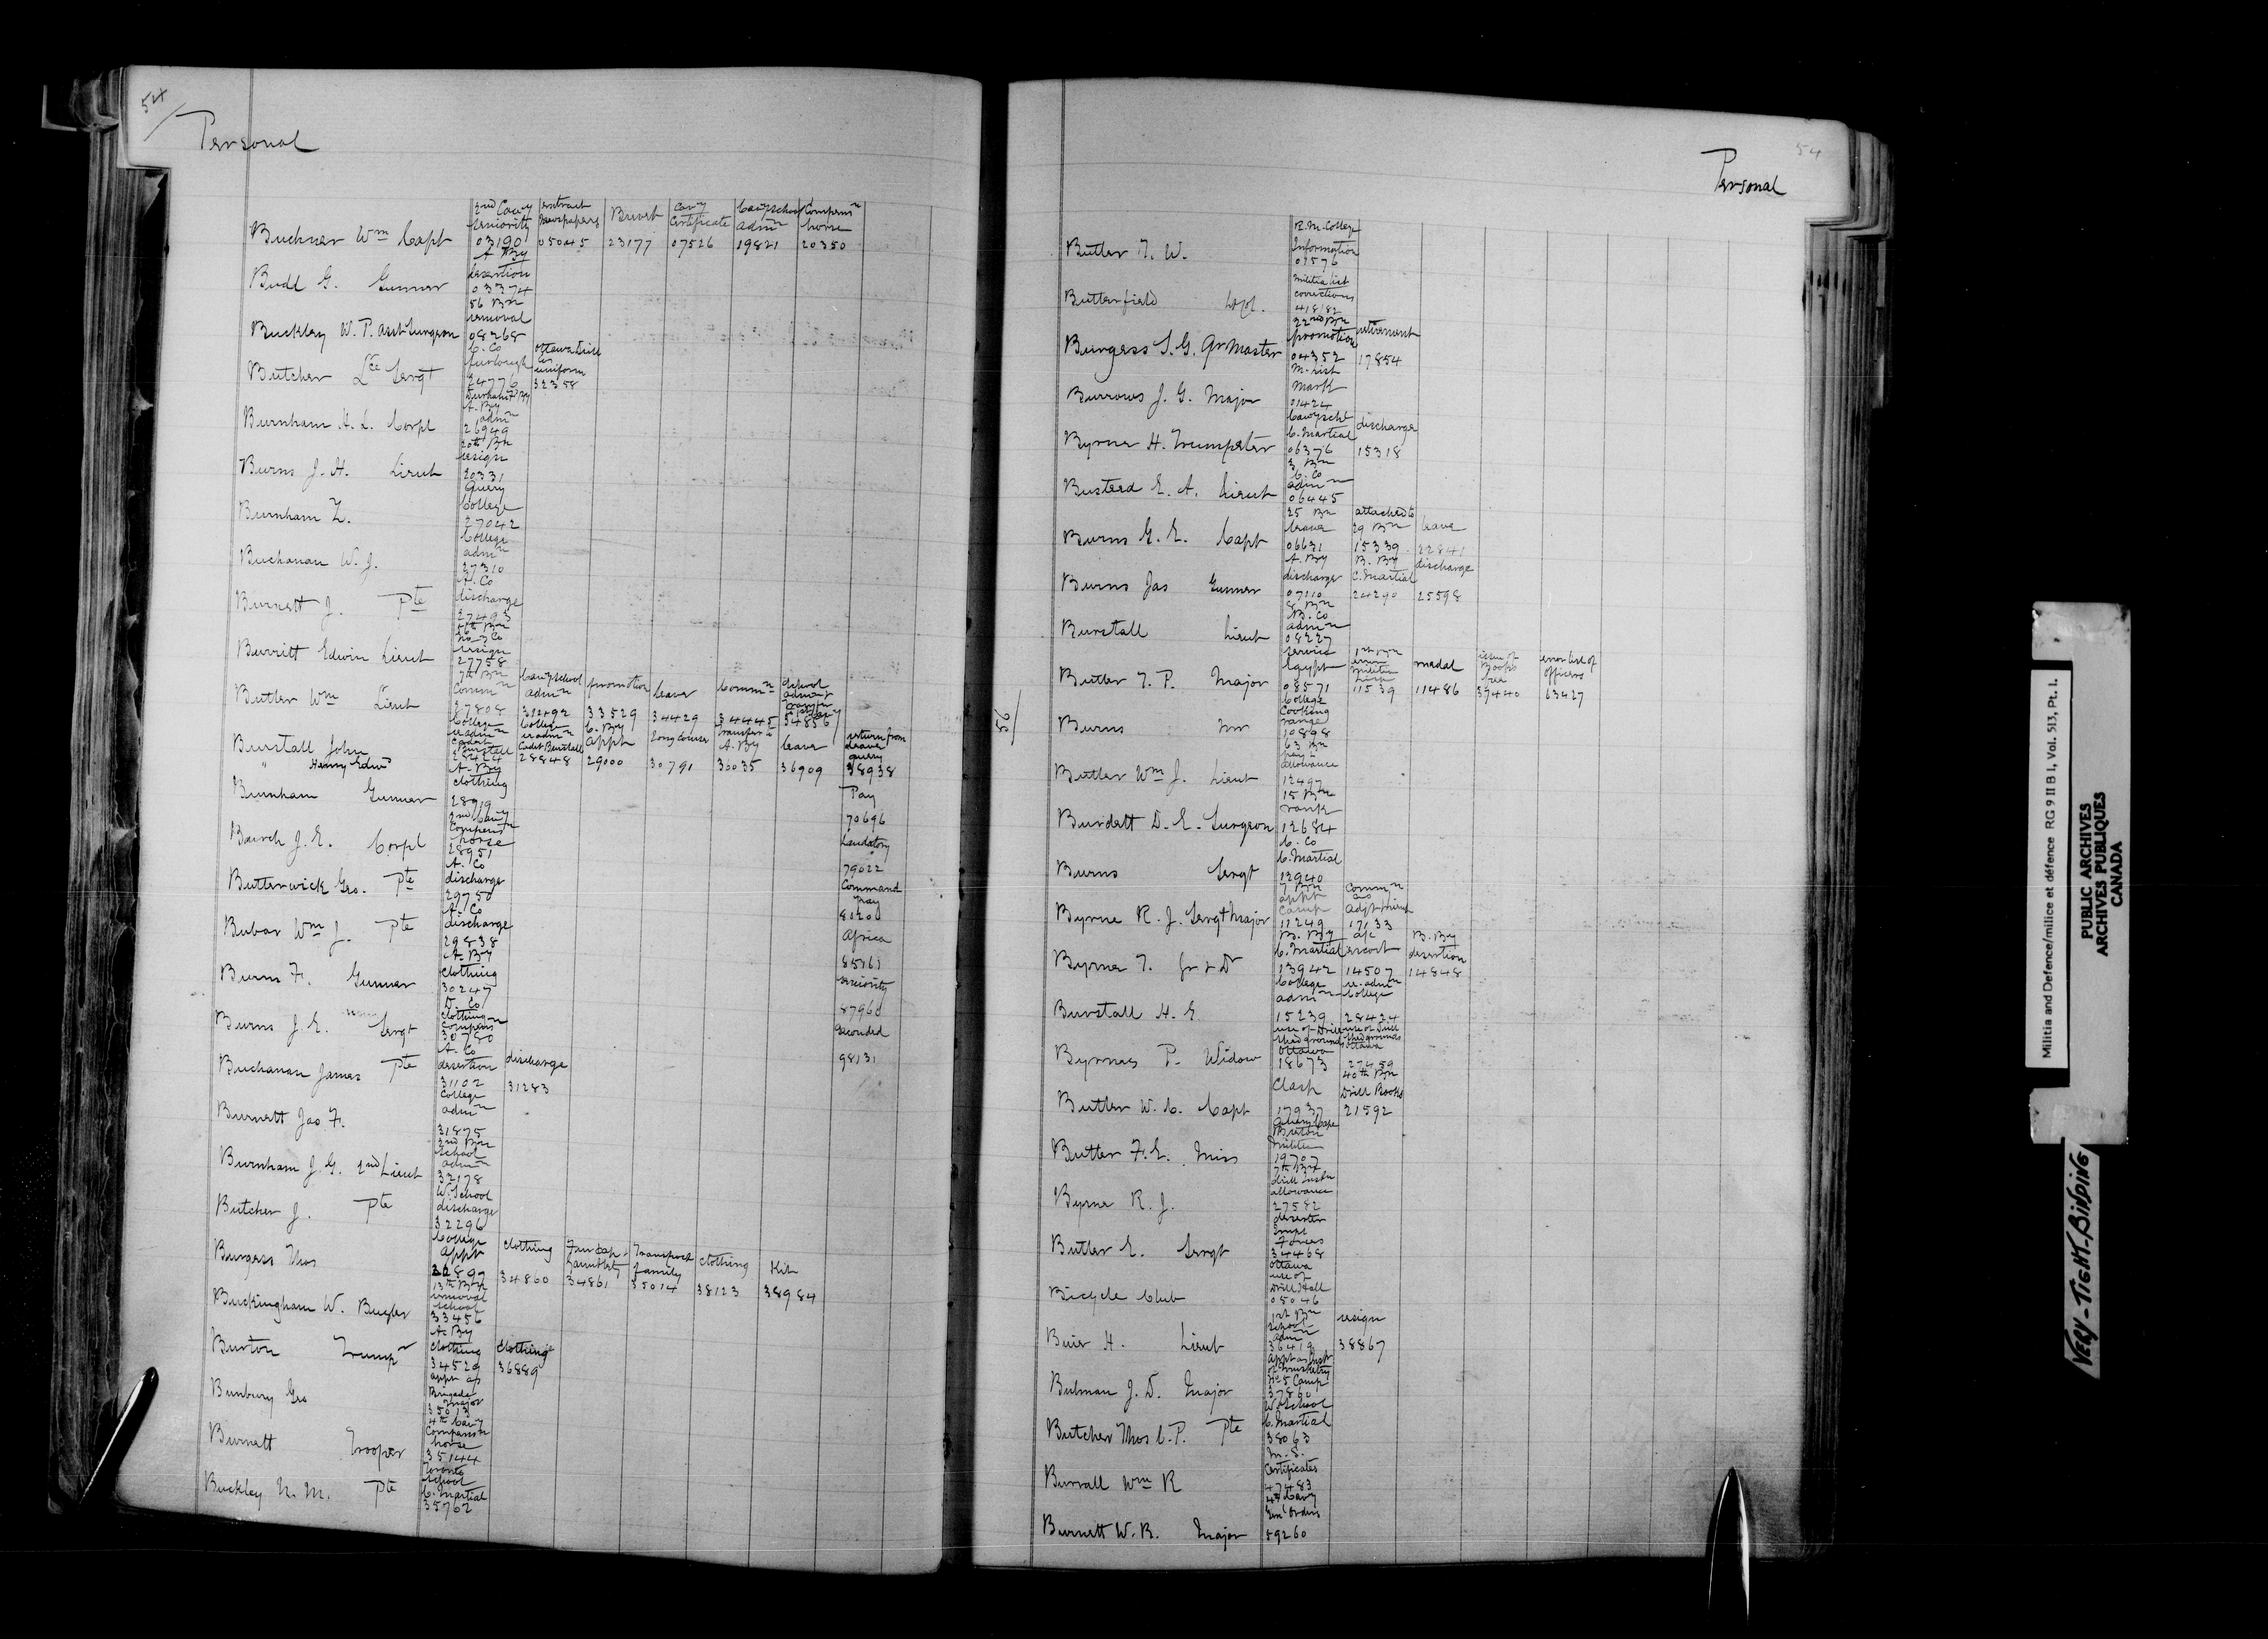 54
Personal
2nd Cavy extract Brevet Cavy Cavy School Compensn
seniority newspapers Certificate admn horse
Buckner Wm Capt 03190 05045 23177 07526 19821 20350
A By
desertion
Budd G. Gunner 03374
56 Bn
removal
Buckley W. P. Asst Surgeon 08268
C. Co Ottawa
furlough uniform
Butcher Lce Sergt 24776 32358
A. By
admn
Burnham A. L. Corpl 26949
20th Bn
resign
Burns J. H. Lieut 20331
Query
College
Burnham Z. 27042
College
admn
Buchanan W. J. 27310
A. Co
discharge
Burnett J. Pte 27493
No 7 Co
resign
Burritt Edwin Lieut 27758
7th Bn Cavy School promotion leave Commn School
Commn admn
Butler Wm Lieut 27808 31492 33529 34429 34445 34856
College College C. By long course transfer to leave return from
readmn readmn appt A. By leave
Cadet Burstall Cadet Burstall query
Burstall John 28424 28848 29000 30791 36035 36909 38938
" Henry Edwd
A. By
clothing Pay
Burnham Gunner 28919 70696
2nd Cavy
Compensn
horse Laudatory
Burch J. E. Corpl 28951 79022
A. Co
discharge Command
Butterwick Geo. Pte 29750 pay
A. Co 80200
discharge
Bubar Wm J. Pte 29838 Africa
A. By 85161
clothing
Burns F. Gunner 30247 seniority
D. Co 87960
clothing
compensn
Burns J. E. Sergt 30780 Seconded
A. Co 98131
desertion discharge
Buchanan James Pte 31102 31283
College
admn
Burnett Jas F. 31875
2nd Bn
School
admn
Burnham J. G. 2nd Lieut 32178
W. School
discharge
Butcher J. Pte 32296
College clothing transport clothing Kit
appt family
Burgess Thos 32899 34860 34861 35014 38123 38984
13th Bn
removal
school
Buckingham W. Bugler 33456
A. By
clothing clothing
Burton Trumpr 34529 36889
appt as
Brigade
Major
Bunbury Geo 35013
4th Cavy
Compensn
horse
Burnett Trooper 35144
Toronto
School
C. Martial
Buckley N. M. Pte 35762
54
Personal
R. M. College
Information
Butler T. W. 01576
Militia list
corrections
Butterfield 41818
22nd Bn retirement
promotion
Burgess S. G. Qr Master 04352 17854
M. List
mark
Burrows J. G. Major 01424
Cavy Schl discharge
C. Martial
Byrne H. Trumpeter 06376 15318
3 Bn
C. Co
admn
Busteed E. A. Lieut 06445
25 Bn attached to
leave 29 Bn leave
Burns G. E. Capt 06631 15339 22841
A. By B. By discharge
discharge C. Martial
Burns Jas Gunner 07110 24290 25598
8 Bn
B. Co
admn
Burstall Lieut 08227
service 1st Bn medal issue of error list of
Egypt error books officers
Butler T. P. Major 08571 11539 11486 39440 63427
College
Cooking
range
Burns Mr 10898
63 Bn
allowance
Butler Wm J. Lieut 12497
15 Bn
rank
Burdett D. E. Surgeon 12684
C. Co
C. Martial
Burns Sergt 12940
7 Bn Commn
appt as
camp Adjt
Byrne R. J. Sergt Major 11249 17133
B. By B. By
C. Martial escort desertion
Byrne T. Gr & Dr 13942 14507 14848
College re-admn
admn College
Burstall H. E. 15239 28424
use of Drill use of Drill
shed grounds shed grounds
Ottawa Ottawa
Byrnes P. Widow 18673 27459
40th Bn
Clasp Drill Books
Butler W. C. Capt 17937 21592
query Cape
Breton
militia
Butler F. E. Miss 19707
7th Bn
drill Instn
allowance
Byrne R. J. 27582
deserter
Impl
Forces
Butler E. Sergt 34468
Ottawa
use of
Drill Hall
Bicycle Club 05046
1st Bn resign
School
admn
Buier H. Lieut 36419 38867
appt as
of musketry
No 5 Camp
Bulman J. D. Major 37860
W. School
C. Martial
Butcher Thos C. P. Pte 38063
M. S.
Certificates
Burrall Wm R 47483
4th Cavy
Genl Orders
Burnett W. R. Major 59260
56
Militia and Defence/milice et défence RG 9 II B 1, Vol. 513, Pt. 1.
PUBLIC ARCHIVES
ARCHIVES PUBLIQUES
CANADA
VERY-TIGHT-BINDING